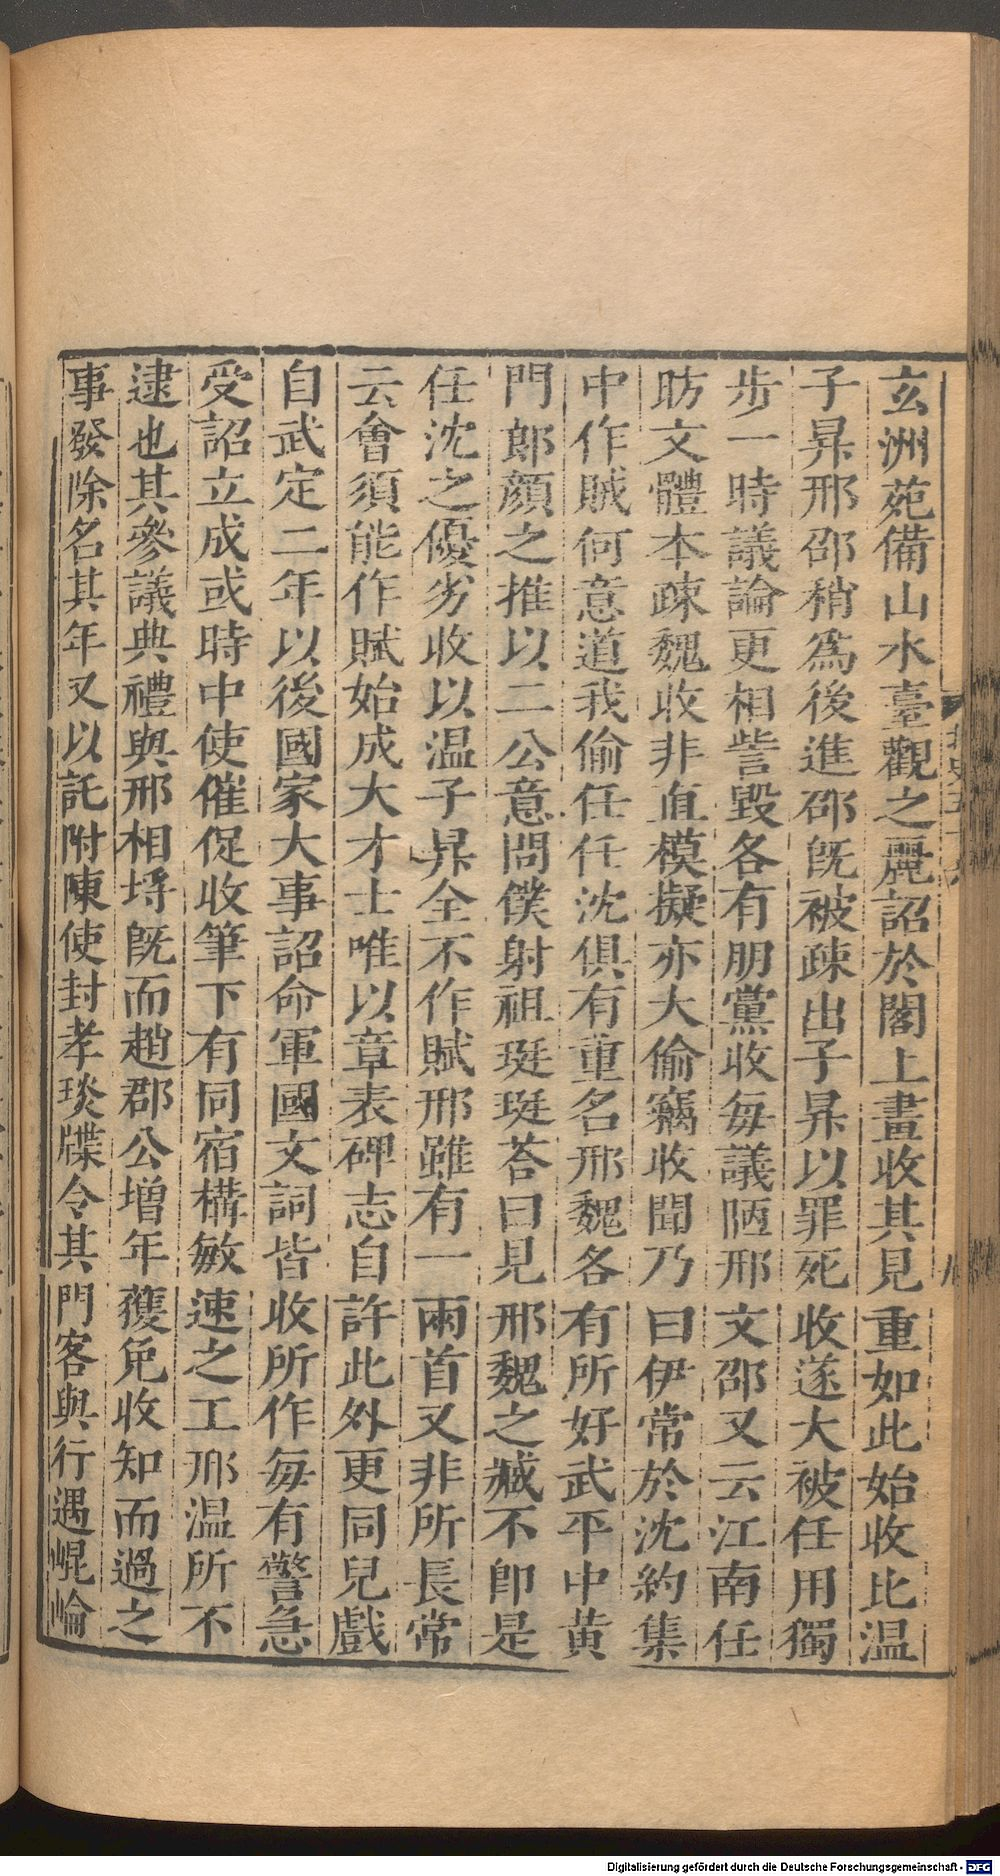 玄洲苑備山水臺觀之麗詔於閣上畫收其見重如此始收比温
子昇邢邵稍爲後進邵旣被疎出子昇以罪死收遂大被任用獨
步一時議論更相訾毀各有朋黨收每議陋邢文邵又云江南任
昉文體本疎魏收非直模擬亦大偷竊收聞乃曰伊常於沈約集
中作賊何意道我偷任任沈俱有重名邢魏各有所好武平中黄
門郎顔之推以二公意問僕射祖珽珽荅曰見邢魏之臧不即是
任沈之優劣收以温子昇全不作賦邢雖有一兩首又非所長常
云會須能作賦始成大才士唯以章表碑志自許此外更同兒戲
自武定二年以後國家大事詔命軍國文詞皆收所作每有警急
受詔立成或時中使催促收筆下有同宿構敏速之工邢温所不
逮也其參議典禮與邢相埒旣而趙郡公增年獲免收知而過之
事發除名其年又以託附陳使封孝琰牒令其門客與行遇崐崘
Digitalisierung gefördert durch die Deutsche Forschungsgemeinschaft - DFG